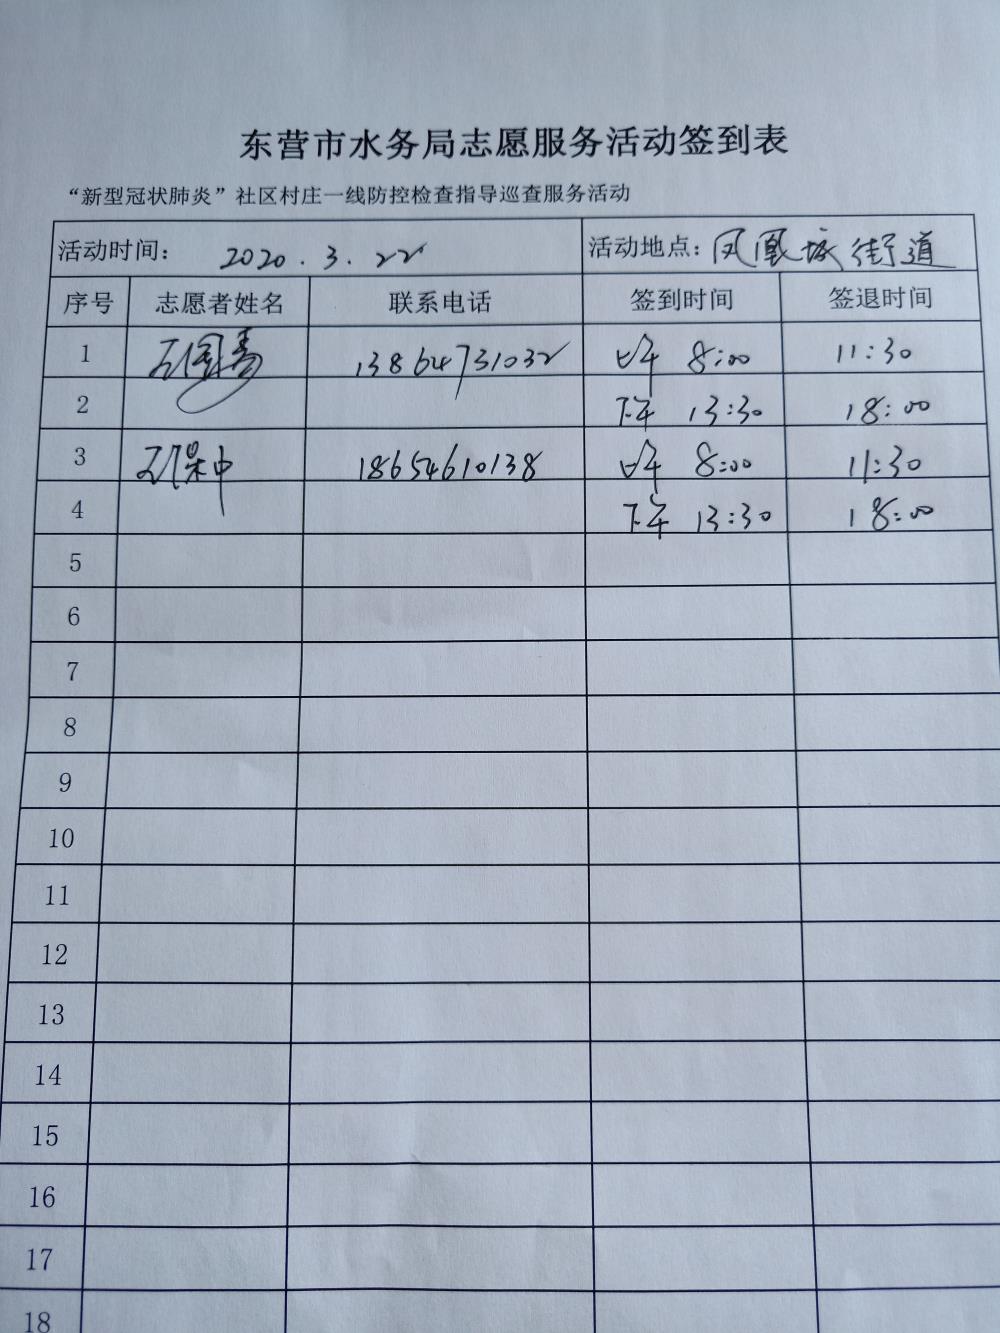 东营市水务局志愿服务活动签到表
“新型冠状肺炎”社区村庄一线防控检查指导巡查服务活动
活动时间： 2020.3.22 活动地点：凤凰城街道
序号 志愿者姓名 联系电话 签到时间 签退时间
1 13864731032 上午 8:00 11:30
2 下午 13:30 18:00
3 18654610138 上午 8:00 11:30
4 下午 13:30 18:00
5
6
7
8
9
10
11
12
13
14
15
16
17
18